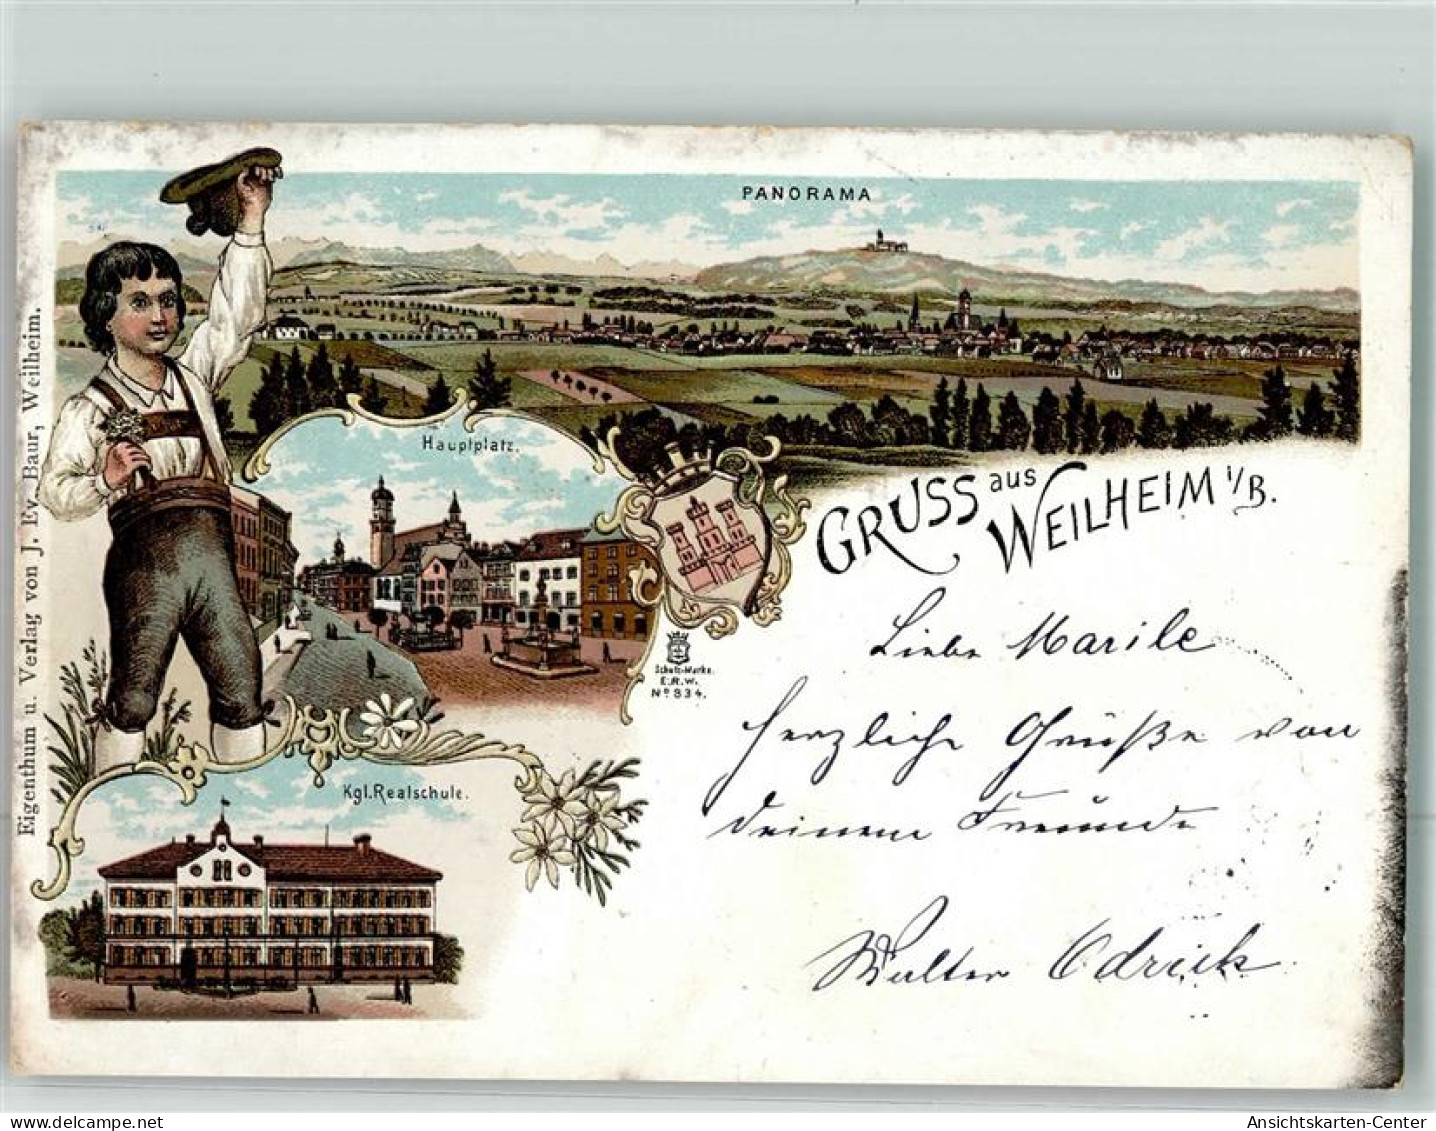 PANORAMA
Hauptplatz.
GRUSS aus
WEILHEIM i/B.
Schutz-Marke.
E.R.W.
No 834.
Kgl. Realschule.
Eigenthum u. Verlag von J. Ev. Baur, Weilheim.
Liebe Marile
herzliche Grüße von
deinem Freunde
Walter Odrick
Ansichtskarten-Center